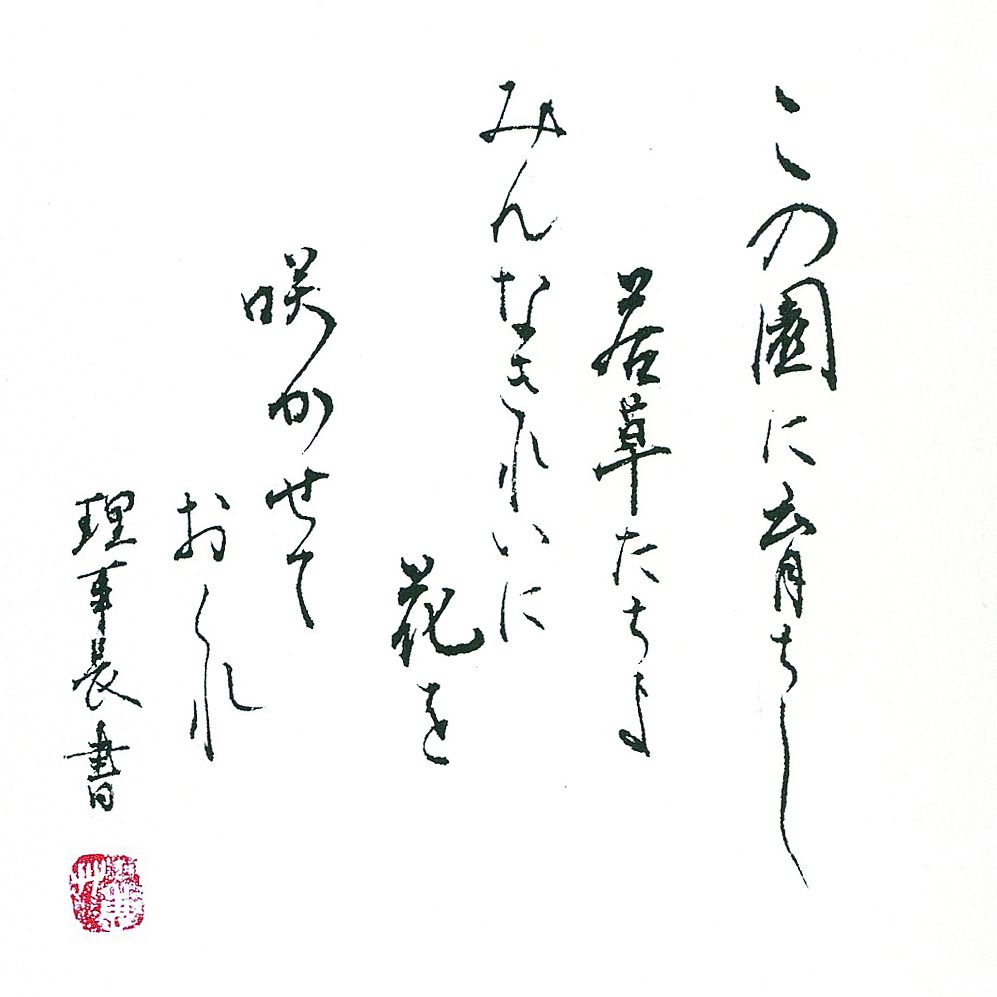 この園に育ちし
若草たちよ
みんなきれいに
花を
咲かせて
おくれ
理事長書